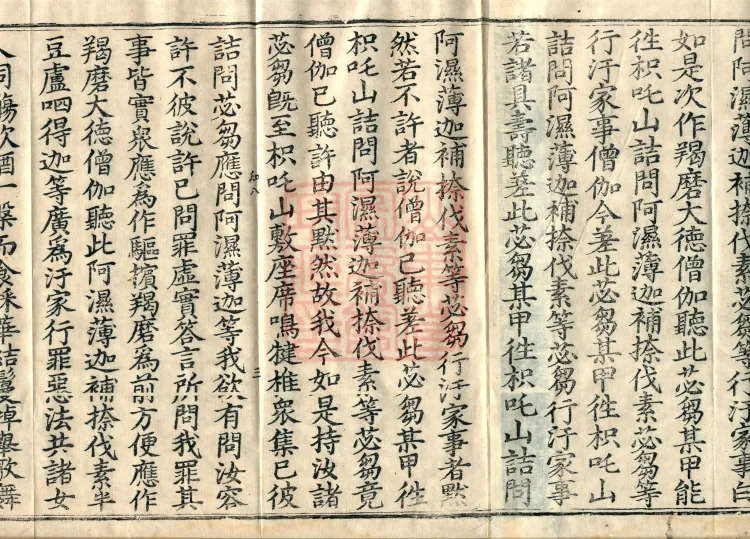 問阿濕薄迦補捺伐素苾芻等行汙家事白
如是次作羯磨大德僧伽聽此苾芻某甲能
徃枳吒山詰問阿濕薄迦補捺伐素苾芻等
行汙家事僧伽今差此苾芻某甲徃枳吒山
詰問阿濕薄迦補捺伐素等苾芻行汙家事
若諸具壽聽差此苾芻某甲徃枳吒山詰問
阿濕薄迦補捺伐素等苾芻行汙家事者黙
然若不許者說僧伽巳聽差此苾芻某甲徃
枳吒山詰問阿濕薄迦補捺伐素等苾芻竟
僧伽巳聽許由其黙然故我今如是持汝諸
苾芻旣至枳吒山敷座席鳴揵椎衆集巳彼
詰問苾芻應問阿濕薄迦等我欲有問汝容
許不彼說許巳問罪虛實荅言所問我罪其
事皆實衆應爲作驅擯羯磨爲前方便應作
羯磨大德僧伽聽此阿濕薄迦補捺伐素半
豆盧呬得迦等廣爲汙家行罪惡法共諸女
人同觴飮酒一槃而食採華結鬘掉舉歌舞